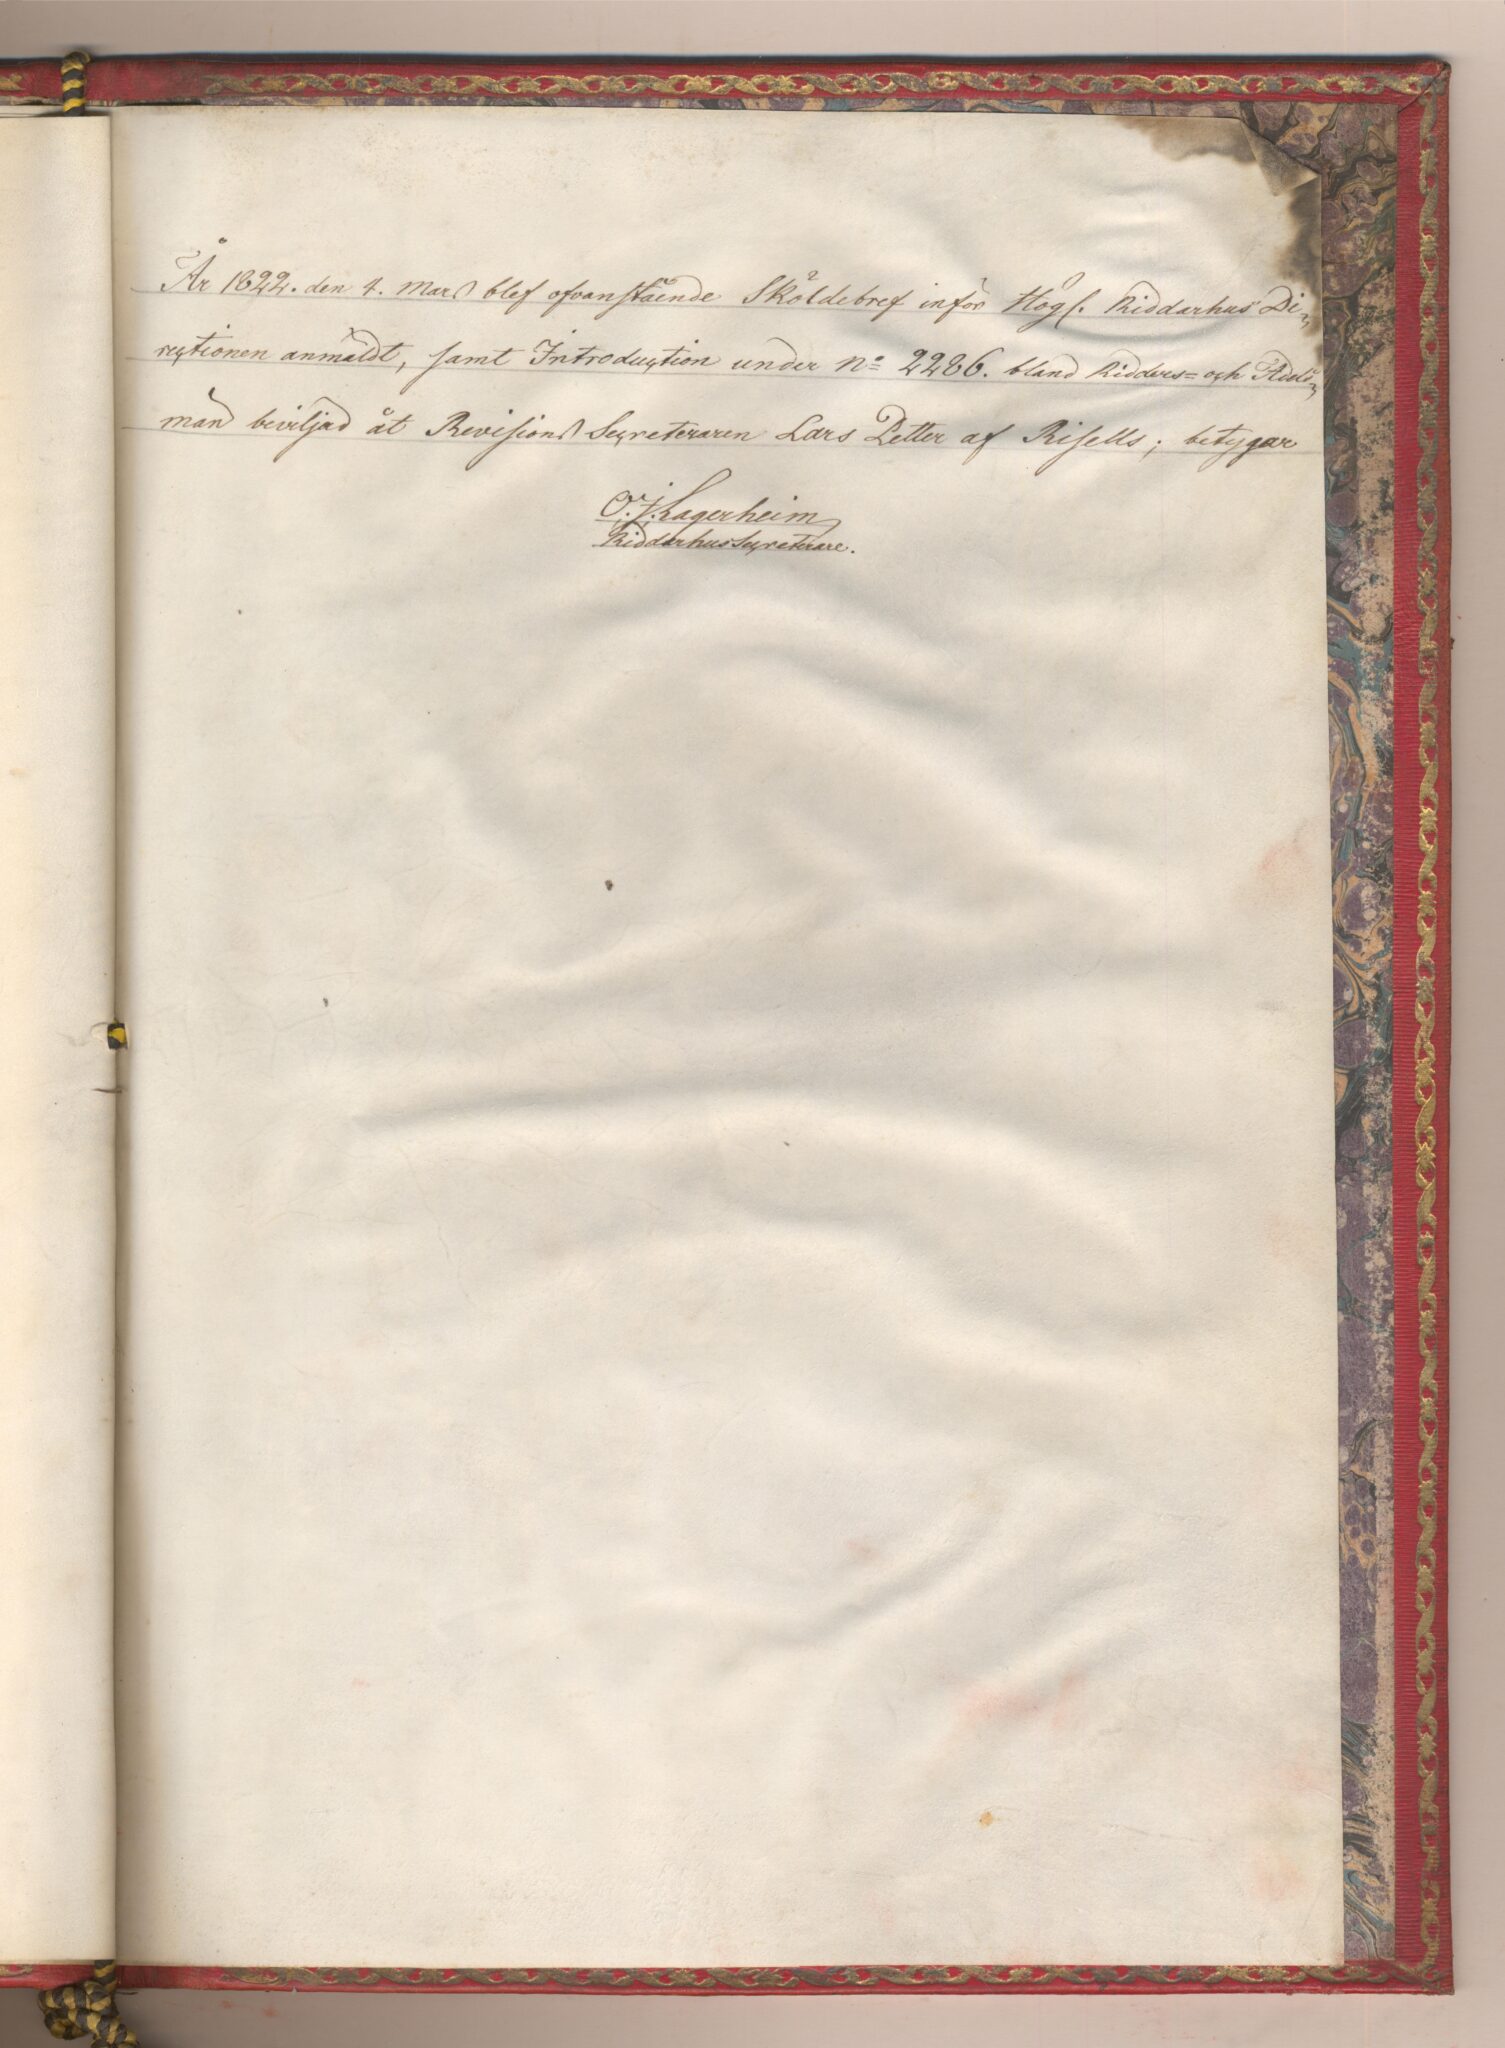 År 1822. den 4. Mars blef ofvanstående Sköldebref inför Högl. Riddarhus Di-
rectionen anmäldt, samt Introduction under No 2286. bland Ridders= och Adels-
män beviljad åt Revisions Secreteraren Lars Petter af Risells; betygar
O. J. Lagerheim
RiddarhusSecreterare.